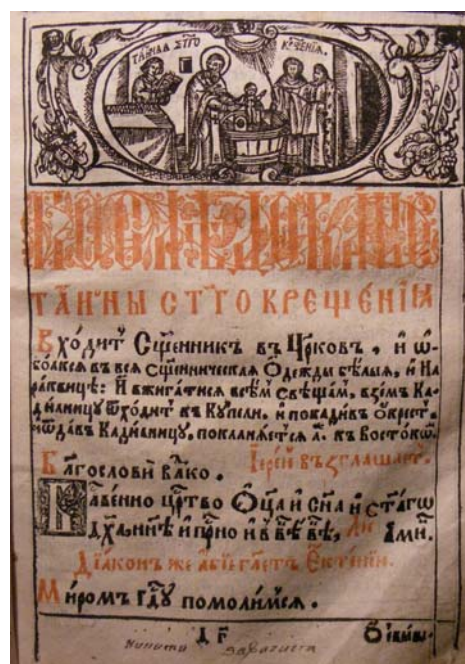 ТАЙНАА СТГО КРЕЩЕНІЯ.
ПОСЛѢДОВАНІЕ
ТАИНЫ СТГО КРЕЩЕНІѦ
Входитъ Сщ҃енникъ въ Цр҃ковъ, и ѡб-
болксѧ въ всѧ Сщ҃енническаѧ Одежды бѣлыѧ, и На
раквицѣ: И вжигатисѧ всѣм свѣщам, взѣмъ Ка-
дилницу Ѿходит къ Купели, и покадивъ окрест,
иѿдавъ Кадилницу, покланѧетсѧ г҃. къ Востокѡ.
Бл҃гослови Вл҃ко. Іерей възглашает.
Бл҃венно цр҃тво Оц҃а и Сн҃а и Ст҃агѡ
Дх҃а, нн҃ѣ и пр҃но и в вѣ вѣ, Ли Амн҃.
Діаконъ же абіе гл҃етъ Ектеніи.
Миромъ Гд҃у помолимсѧ.